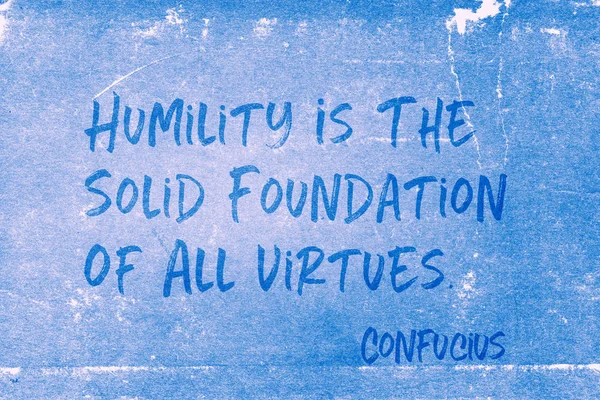 Humility is the
solid foundation
of all virtues.
Confucius